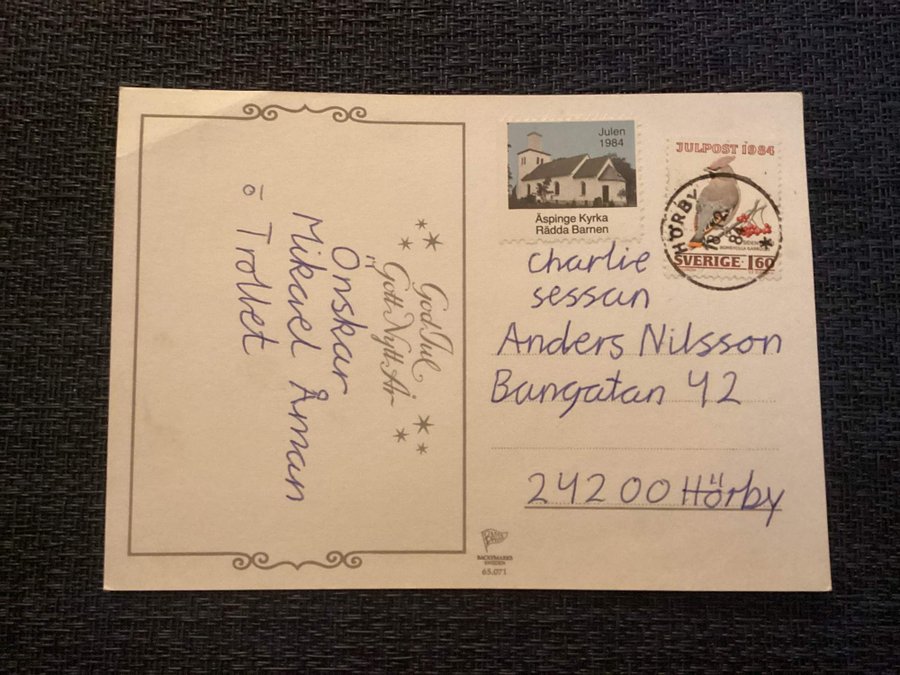 God Jul
Gott Nytt År
Önskar
Mikael Åman
o Trollet
Julen
1984
Äspinge Kyrka
Rädda Barnen
JULPOST 1984
SVERIGE 1.60
HÖRBY
18 12
84
charlie
sessan
Anders Nilsson
Bangatan 42
24200 Hörby
BACKEMARKS
SWEDEN
65.071